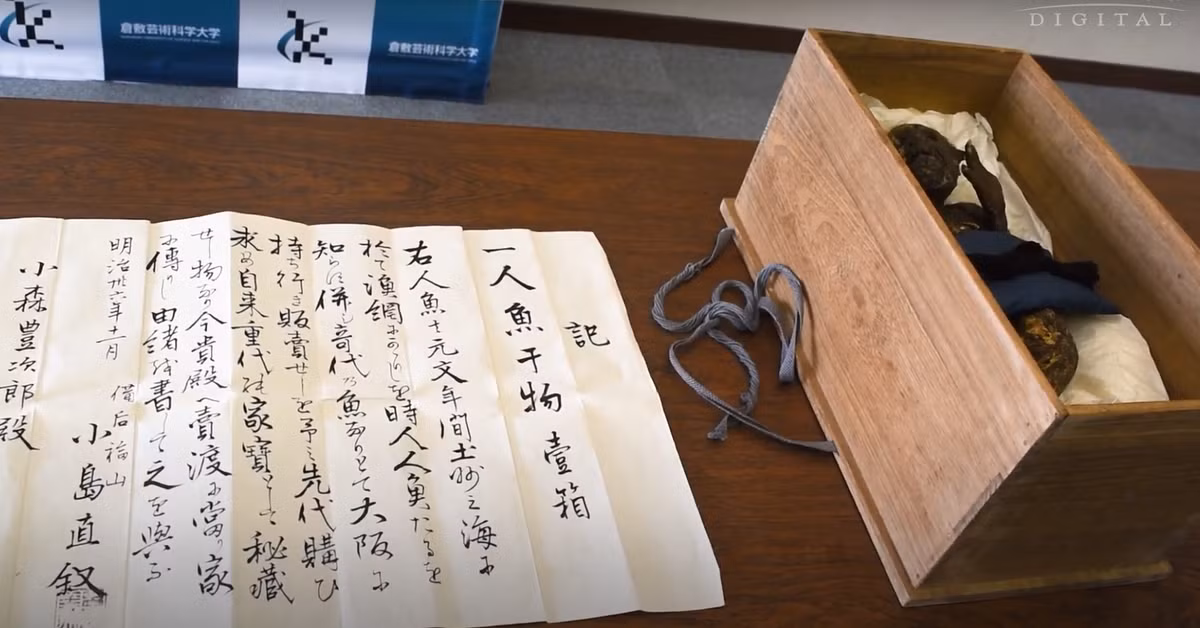 DIGITAL
倉敷芸術科学大学
倉敷芸術科学大学
記
一人魚干物 壹箱
右人魚ハ元文年間土州之海に
於て漁網にかゝりしを時人人魚たるを
知らに併も奇代乃魚なりとて大阪に
持ち行き販賣せしを予之先代購ひ
求め自来重代 家寶として秘蔵
せ 物なり今貴殿へ賣渡に當り家
に傳りし由緒を書して之を與ふ
明治卅六年十一月 備后福山
小島直
小森豊次郎殿